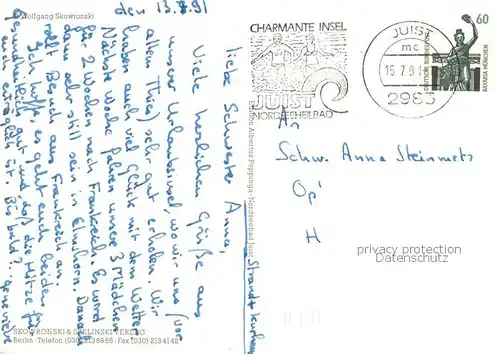 Wolfgang Skowronski
den 13.7.91
liebe Schwester Anna,
Viele herzlichen Grüße aus
unserer Urlaubsinsel, wo wir uns (vor
allem Thies) sehr gut erholen. Wir
haben auch viel Glück mit dem Wetter.
Nächste Woche fahren unsere 3 Mädchen
für 2 Wochen nach Frankreich. Es wird
dann sehr still sein in Elmshorn. Danach
rollt Besuch aus Frankreich an.
Ich hoffe, es geht euch beiden
gesundheitlich gut und daß die Hitze für
euch erträglich ist. Bis bald?. geneviève
SKOWRONSKI & STELINSKI VERLAG
Berlin · Telefon (030) 2136966 · Fax (030) 2134142
Albertus Poppinga · Nordseebad Juist
CHARMANTE INSEL
JUIST
NORDSEEHEILBAD
JUIST
mc
15.7.91
2983
60
DEUTSCHE BUNDESPOST
BAVARIA MÜNCHEN
An
Schw. Anna Steinmetz
Op'
H
privacy protection
Datenschutz